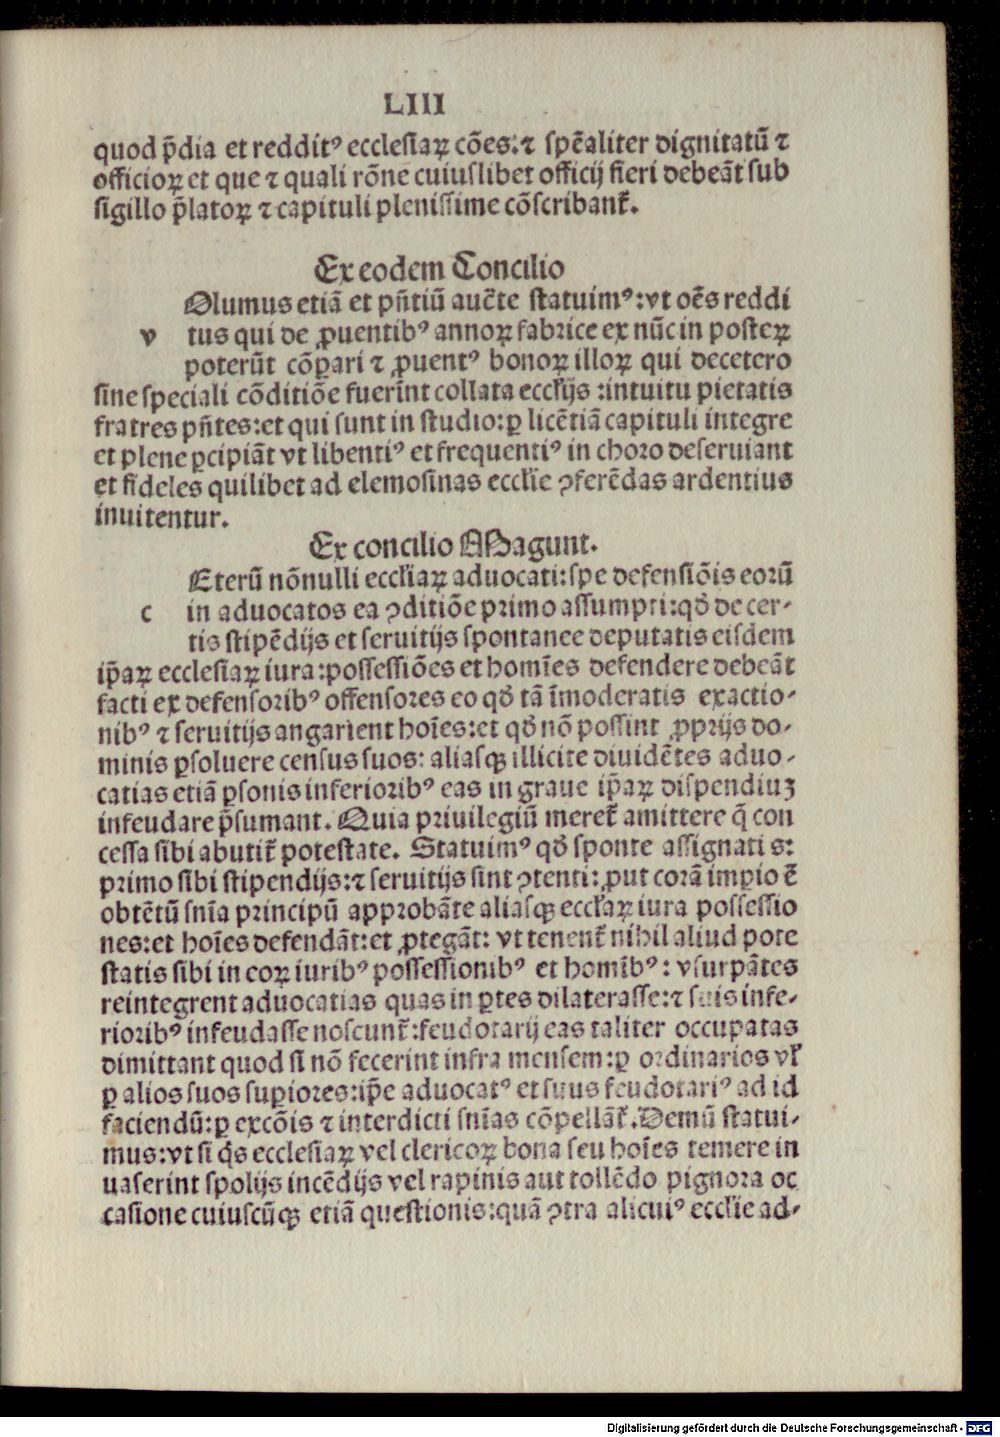 LIII
quod p̄dia et reddit⁹ ecclesiaꝝ cōes:⁊ spēaliter dignitatū ⁊
officioꝝ et que ⁊ quali rōne cuiuslibet officij fieri debeāt sub
sigillo p̄latoꝝ ⁊ capituli plenissime cōscribant᷑.
Ex eodem Concilio
Olumus etiā et pn̄tiū auc̄te statuim⁹:vt oēs reddi
v tus qui de ꝓuentib⁹ annoꝝ fabrice ex nūc in posteꝝ
poterūt cōꝑari ⁊ ꝓuent⁹ bonoꝝ illoꝝ qui decetero
sine speciali cōditiōe fuerīnt collata eccl̄ijs :intuitu pietatis
fratres pn̄tes:et qui sunt in studio:ꝑ licētiā capituli integre
et plene ꝑcipiāt vt libenti⁹ et frequenti⁹ in choro deseruiant
et fideles quilibet ad elemosinas eccl̄ie ꝯferēdas ardentius
inuitentur.
Ex concilio Magunt.
Eterū nōnulli eccl̄iaꝝ aduocati:spe defensiōis eorū
c in aduocatos ea ꝯditiōe primo assumpti:qd̄ de cer-
tis stipēdijs et seruitijs spontanee deputatis eisdem
ip̄aꝝ ecclesiaꝝ iura:possessiōes et homīes defendere debeāt
facti ex defensorib⁹ offensores eo qd̄ tā īmoderatis exactio-
nib⁹ ⁊ seruitijs angarient hoīes:et qd̄ nō possint ꝓprijs do-
minis ꝑsoluere census suos: aliasqꝫ illicite diuidētes aduo-
catias etiā ꝑsonis inferiorib⁹ eas in graue ip̄aꝝ dispendiuꝫ
infeudare p̄sumant. Quia priuilegiū meret᷑ amittere q̄ con
cessa sibi abutit᷑ potestate. Statuim⁹ qd̄ sponte assignati s:
primo sibi stipendijs:⁊ seruitijs sint ꝯtenti:ꝓut corā imꝑio ē
obtētū snīa principū approbāte aliasqꝫ eccl̄aꝝ iura possessio
nes:et hoīes defendāt:et ꝓtegāt: vt tenent᷑ nihil aliud pote
statis sibi in eoꝝ iurib⁹ possessionib⁹ et homīb⁹: vsurpātes
reintegrent aduocatias quas in ꝑtes dilaterasse:⁊ suis infe-
riorib⁹ infeudasse noscunt᷑:feudotarij eas taliter occupatas
dimittant quod si nō fecerint infra mensem:ꝑ ordinarios vl̄
ꝑ alios suos suꝑiores:ip̄e aduocat⁹ et suus feudotari⁹ ad id
faciendū:ꝑ excōis ⁊ interdicti snīas cōpellāt᷑.Demū statui-
mus:vt si q̄s ecclesiaꝝ vel clericoꝝ bona seu hoīes temere in
uaserint spolijs incēdijs vel rapinis aut tollēdo pignora oc
casione cuiuscūqꝫ etiā questionis:quā ꝯtra alicui⁹ eccl̄ie ad-
Digitalisierung gefördert durch die Deutsche Forschungsgemeinschaft - DFG